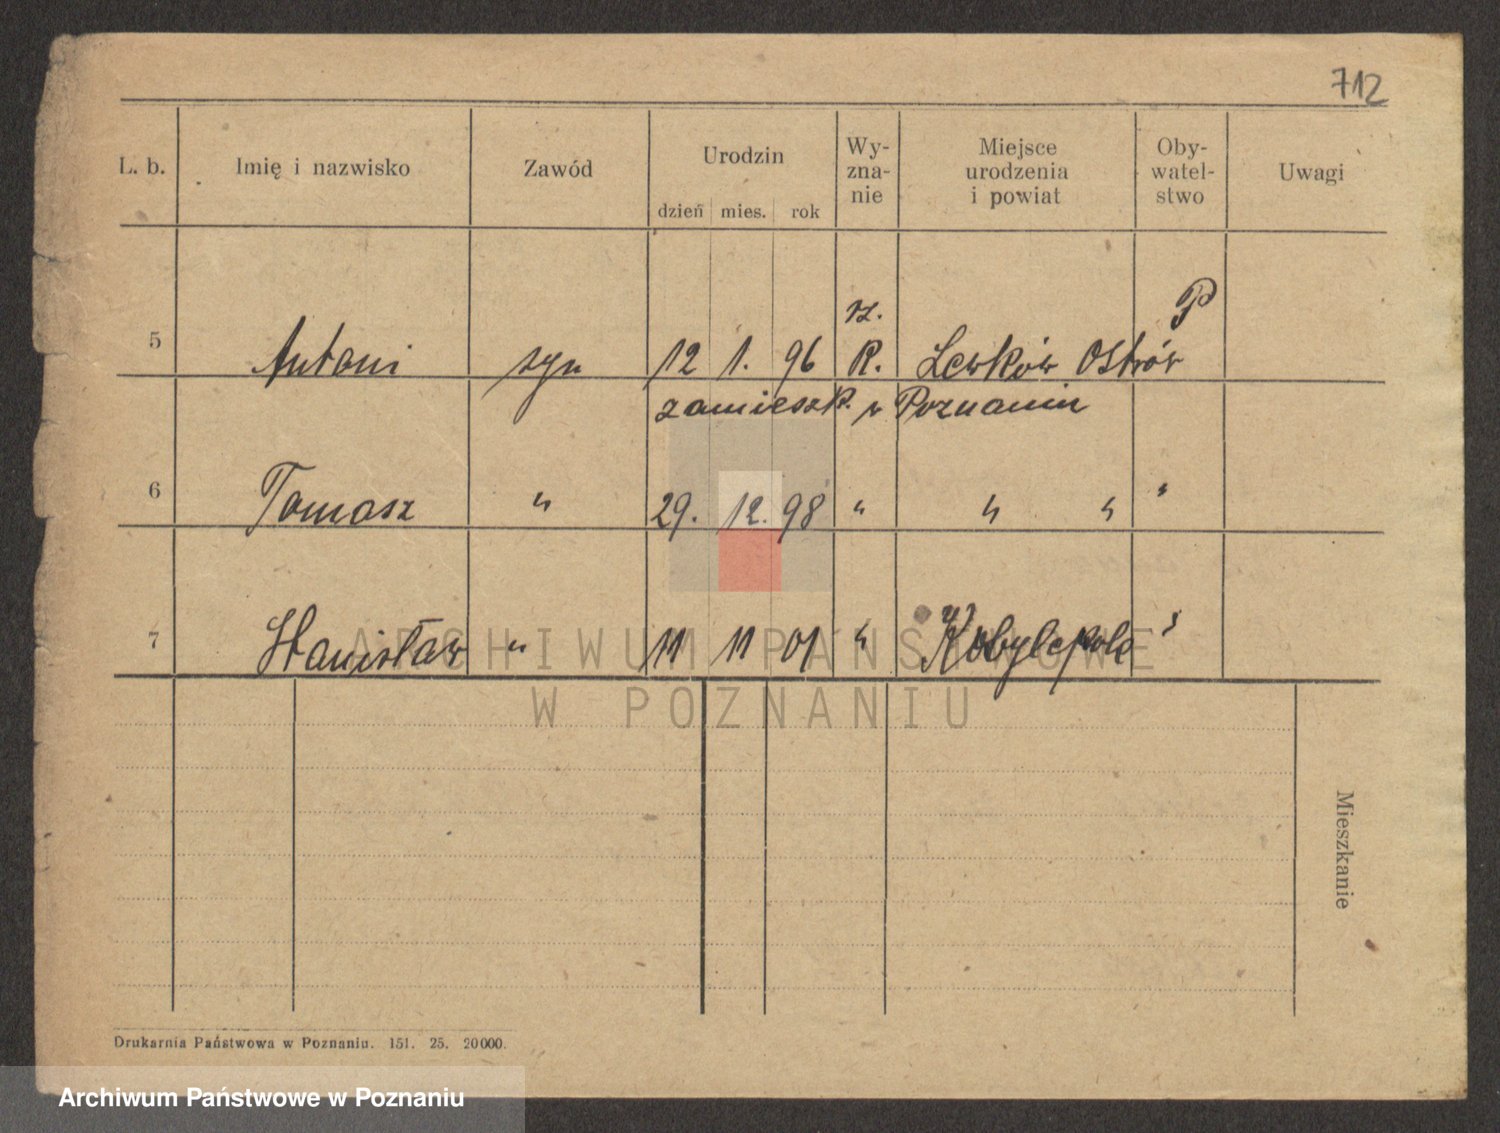 712
L. b. Imię i nazwisko Zawód Urodzin dzień mies. rok Wy-zna-nie Miejsce urodzenia i powiat Oby-watel-stwo Uwagi
5 Antoni syn 12 1. 96 rz. R. Lewków Ostrów P
zamieszk. w Poznaniu
6 Tomasz " 29. 12. 98 " " " "
7 Stanisław " 11 11 01 " Kobylepole "
ARCHIWUM PAŃSTWOWE
W POZNANIU
Mieszkanie
Drukarnia Państwowa w Poznaniu. 151. 25. 20000.
Archiwum Państwowe w Poznaniu